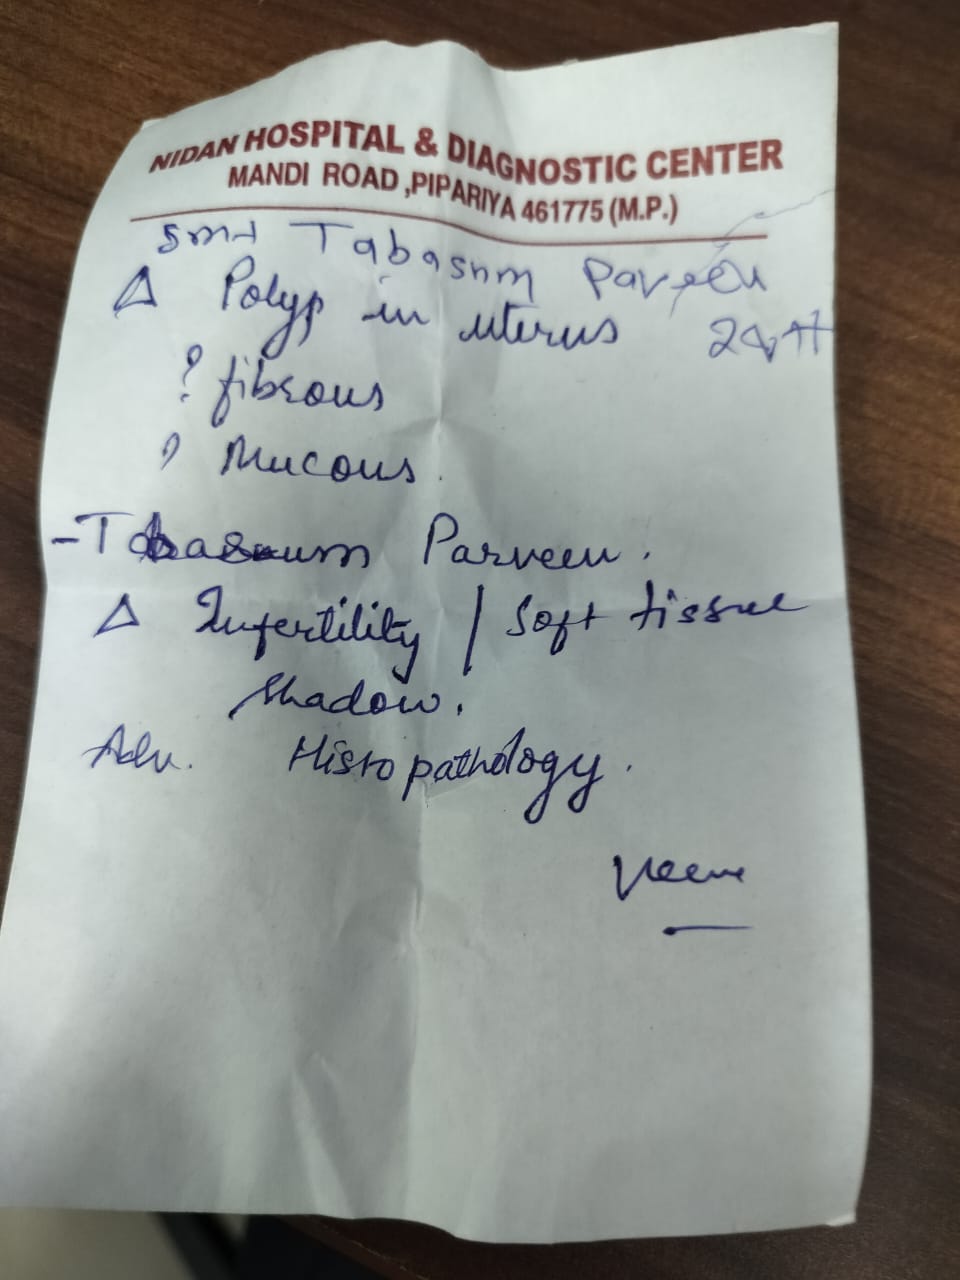 NIDAN HOSPITAL & DIAGNOSTIC CENTER
MANDI ROAD ,PIPARIYA 461775 (M.P.)
Smt Tabasum Parveen
Δ Polyp in uterus
? fibrous
? Mucous.
-Tabasum Parveen.
Δ Infertility / Soft tissue
shadow.
Adv. Histopathology.